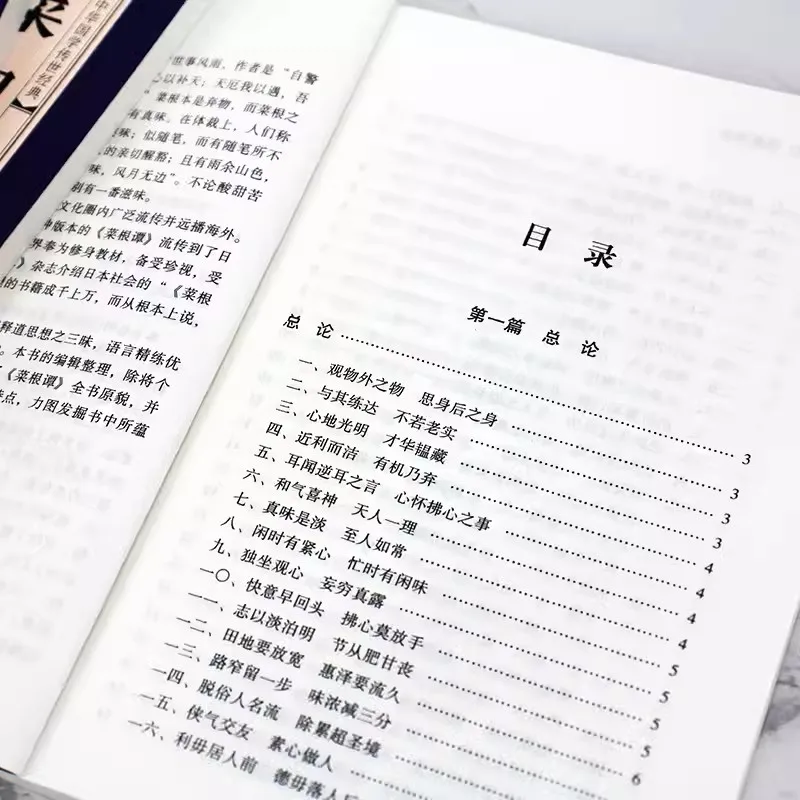 中华国学传世经典
世事风雨，作者是“自警
心以补天；天厄我以遇，吾
”菜根本是弃物，而菜根之
有真味。在体裁上，人们称
味；似随笔，而有随笔所不
的亲切醒豁；且有雨余山色，
味，风月无边”。不论酸甜苦
别有一番滋味。
文化圈内广泛流传并远播海外。
种版本的《菜根谭》流传到了日
界奉为修身教材，备受珍视，受
》杂志介绍日本社会的“《菜根
的书籍成千上万，而从根本上说，
释道思想之三昧，语言精练优
。本书的编辑整理，除将个
《菜根谭》全书原貌，并
特点，力图发掘书中所蕴
目 录
第一篇 总 论
总 论 …… 3
一、观物外之物 思身后之身 …… 3
二、与其练达 不若老实 …… 3
三、心地光明 才华韫藏 …… 3
四、近利而洁 有机乃弃 …… 4
五、耳闻逆耳之言 心怀拂心之事 …… 4
六、和气喜神 天人一理 …… 4
七、真味是淡 至人如常 …… 4
八、闲时有紧心 忙时有闲味 …… 5
九、独坐观心 妄穷真露 …… 5
一〇、快意早回头 拂心莫放手 …… 5
一一、志以淡泊明 节从肥甘丧 …… 5
一二、田地要放宽 惠泽要流久 …… 6
一三、路窄留一步 味浓减三分 ……
一四、脱俗人名流 除累超圣境 ……
一五、侠气交友 素心做人 ……
一六、利毋居人前 德毋落人后